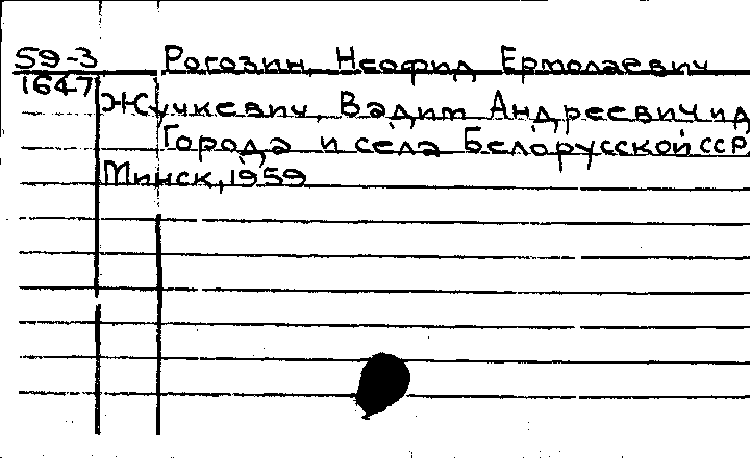 59-3 Рогозин, Неофид Ермолаевич
1647
Жучкевич, Вадим Андреевич и д
Города и села Белорусской ССР
Минск, 1959